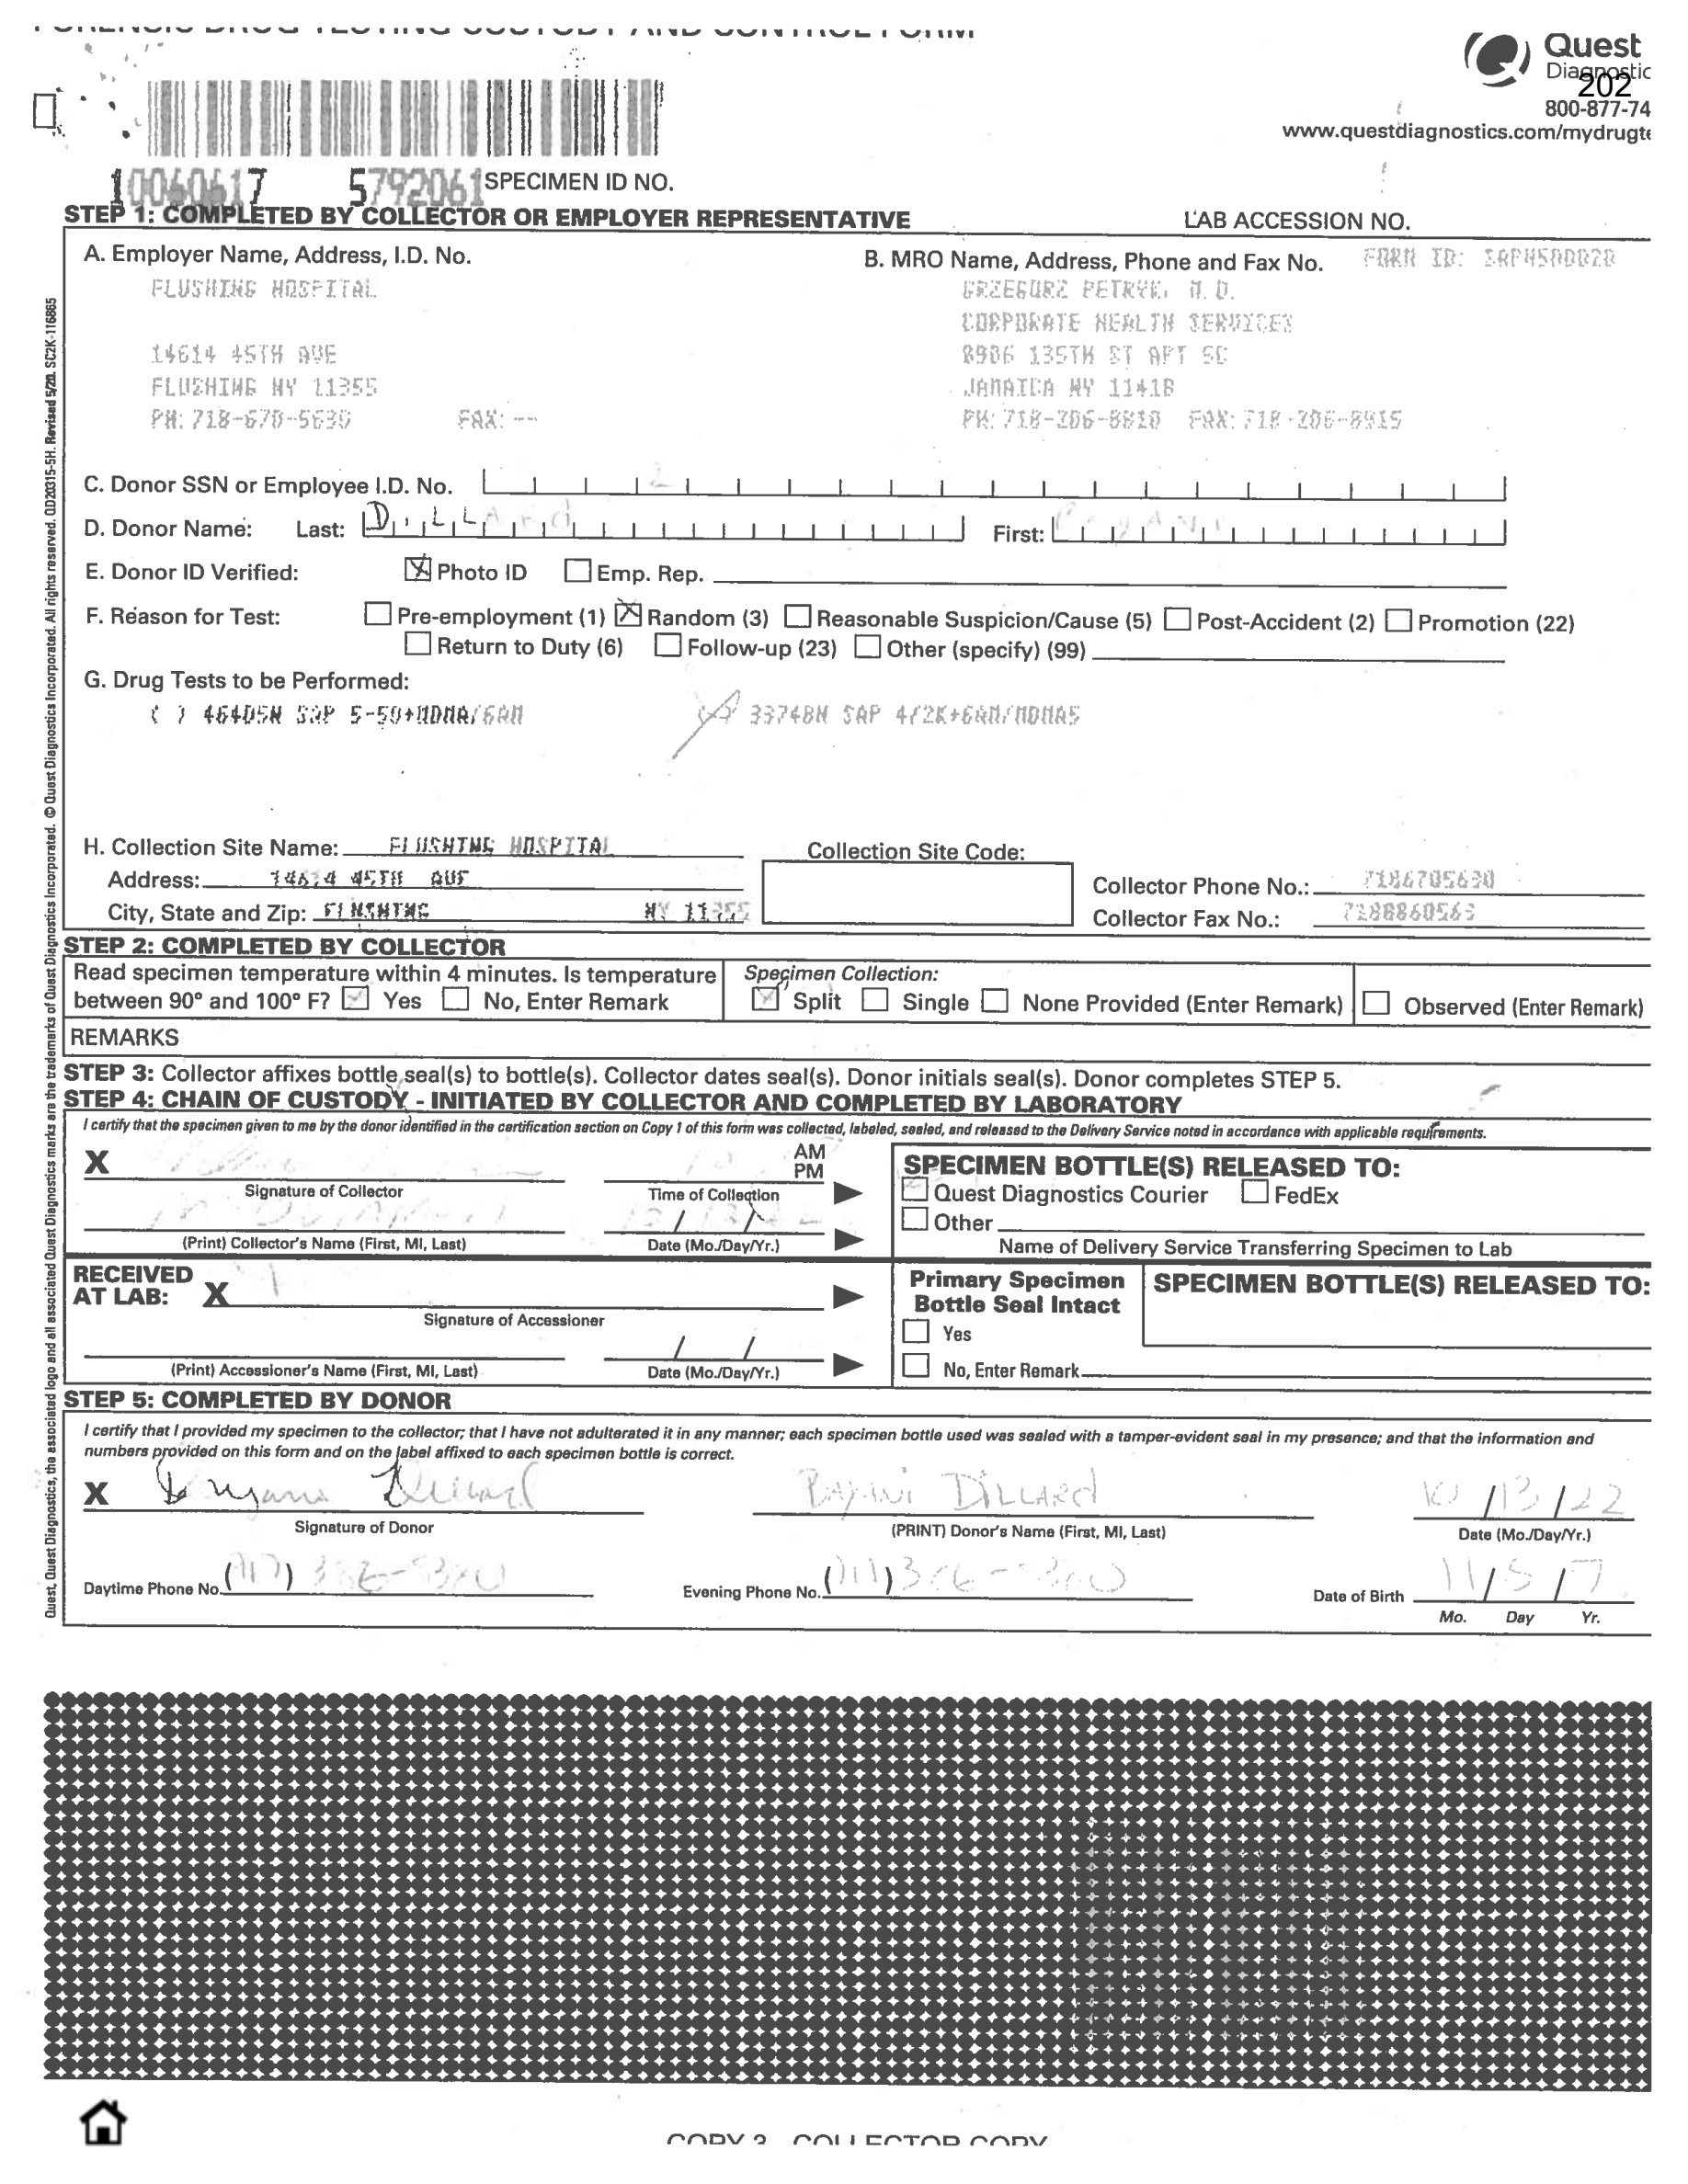 FORENSIC DRUG TESTING CUSTODY AND CONTROL FORM
Quest
Diagnostic
202
800-877-74
www.questdiagnostics.com/mydrugte
10060617 5792061 SPECIMEN ID NO.
STEP 1: COMPLETED BY COLLECTOR OR EMPLOYER REPRESENTATIVE LAB ACCESSION NO.
A. Employer Name, Address, I.D. No.
FLUSHING HOSPITAL
14614 45TH AVE
FLUSHING NY 11355
PH: 718-670-5630 FAX: --
B. MRO Name, Address, Phone and Fax No. FORM ID:
GRZEGORZ PETRYK, M.D.
CORPORATE HEALTH SERVICES
8906 135TH ST APT
JAMAICA NY 11418
PH: 718-206-8810 FAX: 718-206-8915
C. Donor SSN or Employee I.D. No.
D. Donor Name: Last: DILLARd First:
E. Donor ID Verified: Photo ID Emp. Rep.
F. Reason for Test: Pre-employment (1) Random (3) Reasonable Suspicion/Cause (5) Post-Accident (2) Promotion (22)
Return to Duty (6) Follow-up (23) Other (specify) (99)
G. Drug Tests to be Performed:
( ) 46405N SAP 5-50+MDMA/6AM 33748N SAP 4/2K+6AM/MDMAS
H. Collection Site Name: FLUSHING HOSPITAL Collection Site Code:
Address: 14614 45TH AVE Collector Phone No.: 7186705630
City, State and Zip: FLUSHING NY 11355 Collector Fax No.: 7188860563
STEP 2: COMPLETED BY COLLECTOR
Read specimen temperature within 4 minutes. Is temperature
between 90° and 100° F? Yes No, Enter Remark
Specimen Collection:
Split Single None Provided (Enter Remark) Observed (Enter Remark)
REMARKS
STEP 3: Collector affixes bottle seal(s) to bottle(s). Collector dates seal(s). Donor initials seal(s). Donor completes STEP 5.
STEP 4: CHAIN OF CUSTODY - INITIATED BY COLLECTOR AND COMPLETED BY LABORATORY
I certify that the specimen given to me by the donor identified in the certification section on Copy 1 of this form was collected, labeled, sealed, and released to the Delivery Service noted in accordance with applicable requirements.
X
AM
PM
Signature of Collector Time of Collection
(Print) Collector's Name (First, MI, Last) Date (Mo./Day/Yr.)
SPECIMEN BOTTLE(S) RELEASED TO:
Quest Diagnostics Courier FedEx
Other
Name of Delivery Service Transferring Specimen to Lab
RECEIVED
AT LAB: X
Signature of Accessioner
(Print) Accessioner's Name (First, MI, Last) Date (Mo./Day/Yr.)
Primary Specimen
Bottle Seal Intact
Yes
No, Enter Remark
SPECIMEN BOTTLE(S) RELEASED TO:
STEP 5: COMPLETED BY DONOR
I certify that I provided my specimen to the collector; that I have not adulterated it in any manner; each specimen bottle used was sealed with a tamper-evident seal in my presence; and that the information and
numbers provided on this form and on the label affixed to each specimen bottle is correct.
X Dillard DILLARd 10/13/22
Signature of Donor (PRINT) Donor's Name (First, MI, Last) Date (Mo./Day/Yr.)
Daytime Phone No. Evening Phone No. Date of Birth 11/5/
Mo. Day Yr.
Quest, Quest Diagnostics, the associated logo and all associated Quest Diagnostics marks are the trademarks of Quest Diagnostics Incorporated. © Quest Diagnostics Incorporated. All rights reserved. QD20315-5H. Revised 5/20. SC2K-116865
COPY 3 COLLECTOR COPY